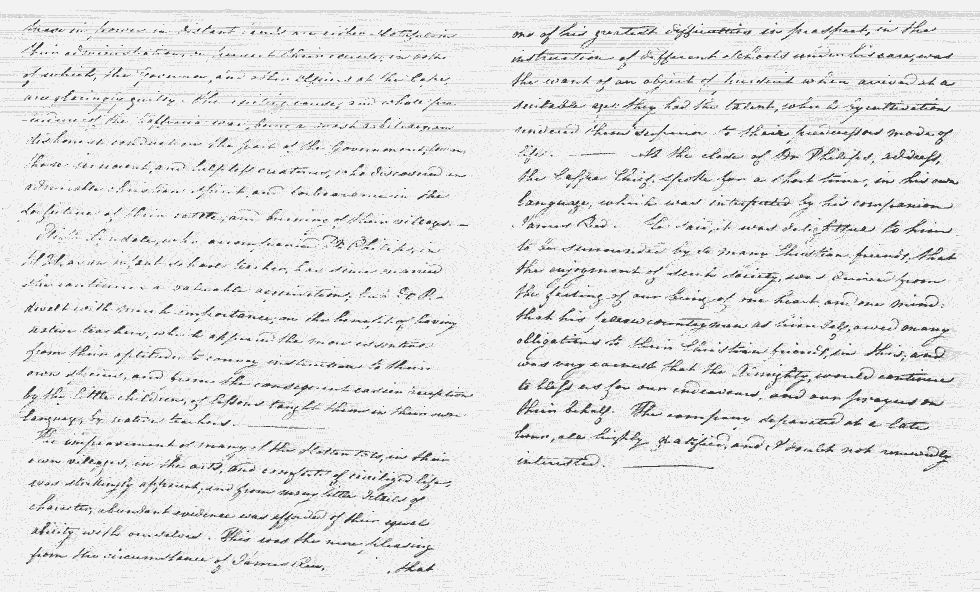 those in power in distant lands are either
their administration, or honest their councils, in both
of which, the Governor, and other officers at the Cape,
are glaringly guilty. The exciting cause, and whole
of the Caffraria war, being a most arbitrary and
dishonest conduct on the part of the Government, towards
those innocent, and helpless creatures, who discovered an
admirable Christian spirit and forbearance in the
of their cattle, and burning of their villages. —
who accompanied Dr. Philip, in
as an infant school teacher, has since married
she continues a valuable assistant, but Dr P.
dwelt with much importance, on the benefit of having
native teachers, which appeared the more essential
from their aptitude to convey instruction to their
own stations, and from the consequent easier reception
by the little children, of lessons taught them in their own
language, by native teachers. —
The improvement of many of the Hottentots, in their
own villages, in the arts, and comforts of civilized life,
was strikingly apparent, and from many little details of
character, abundant evidence was afforded of their equal
ability with ourselves. This was the more pleasing
from the circumstance of James Read, that
one of his greatest difficulties in prospect, in the
instruction of different schools under his care, was
the want of an object of incident when arrived at a
suitable age; they had the talent, which by cultivation
rendered them superior to their predecessors mode of
life. — At the close of Dr Philip's, address,
the Caffre Chief, spoke for a short time, in his own
language, which was interpreted by his companion
James Read. He said, it was delightful to him
to be surrounded by so many Christian friends, that
the enjoyment of such society, was derived from
the feeling of our being of one heart, and one mind:
that his fellow countrymen as himself, owed many
obligations to their Christian friends, in this, and
was very earnest that the Almighty, would continue
to bless us for our endeavours, and our prayers on
their behalf. The company separated at a late
hour, all highly gratified, and I doubt not renewedly
interested. —